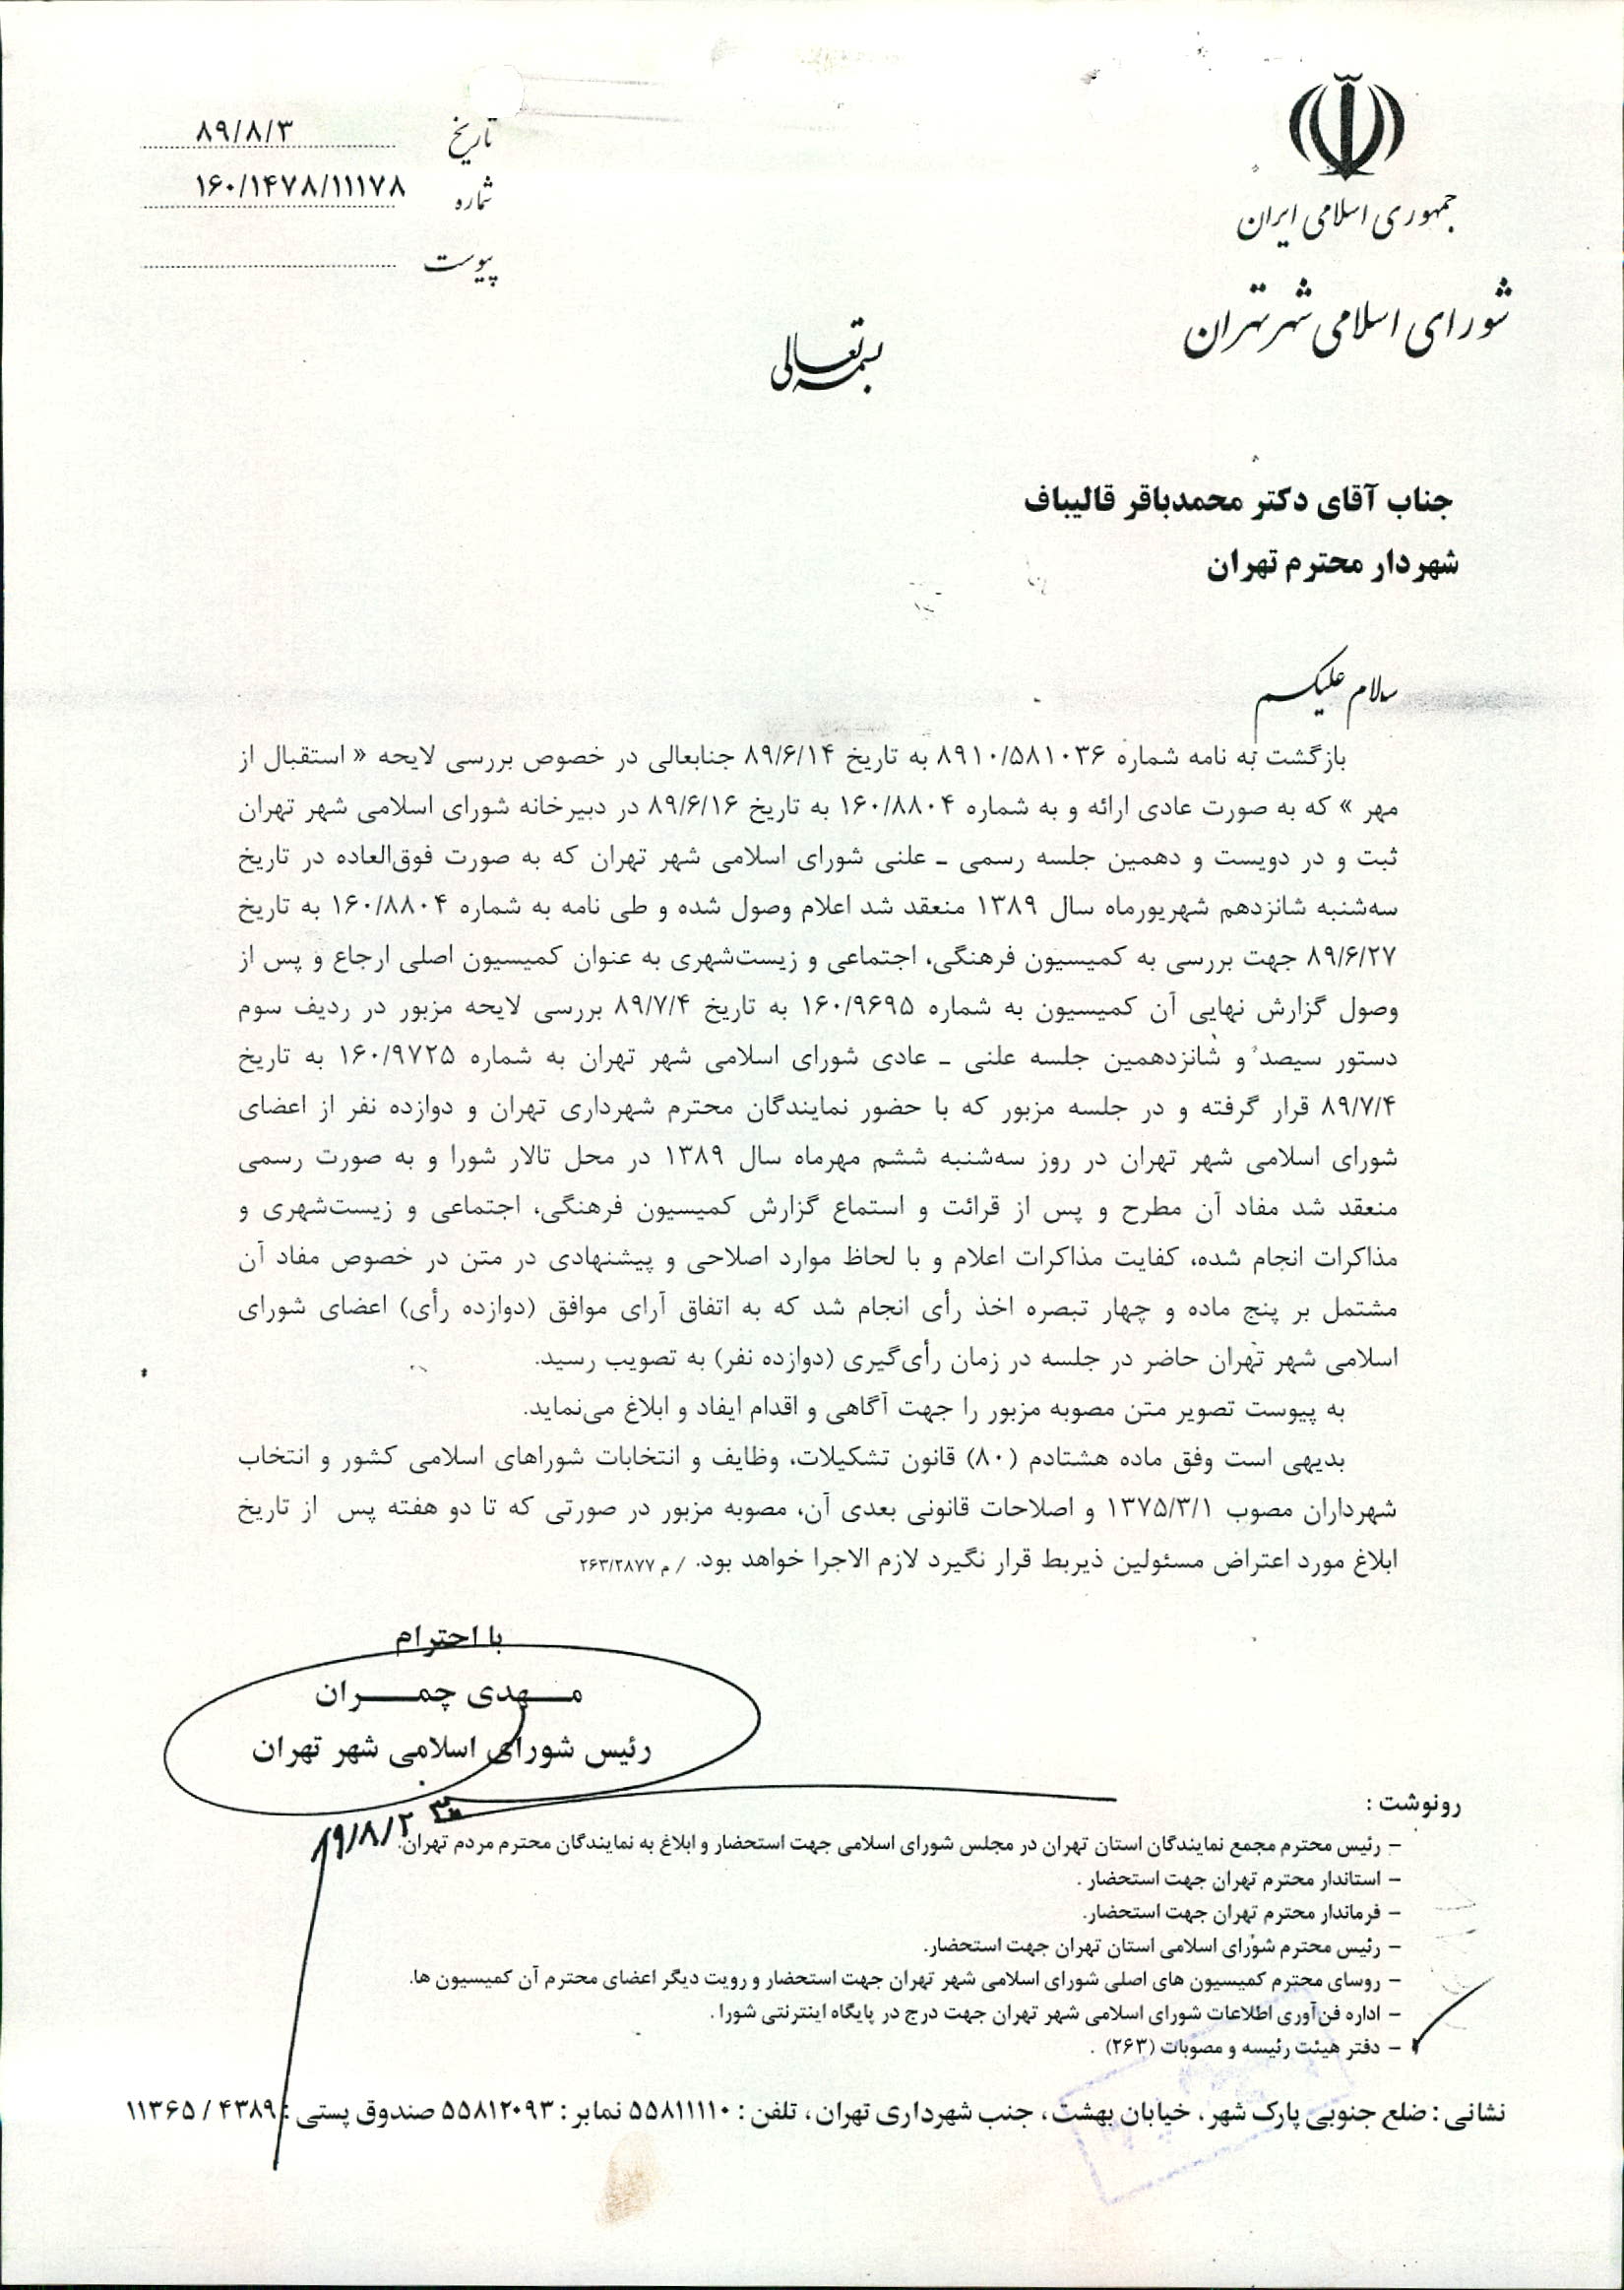 جمهوری اسلامی ایران
شورای اسلامی شهر تهران
تاریخ ۸۹/۸/۳
شماره ۱۶۰/۱۴۷۸/۱۱۱۷۸
پیوست
بسمه تعالی
جناب آقای دکتر محمدباقر قالیباف
شهردار محترم تهران
سلام علیکم
بازگشت به نامه شماره ۸۹۱۰/۵۸۱۰۳۶ به تاریخ ۸۹/۶/۱۴ جنابعالی در خصوص بررسی لایحه « استقبال از
مهر » که به صورت عادی ارائه و به شماره ۱۶۰/۸۸۰۴ به تاریخ ۸۹/۶/۱۶ در دبیرخانه شورای اسلامی شهر تهران
ثبت و در دویست و دهمین جلسه رسمی ـ علنی شورای اسلامی شهر تهران که به صورت فوق‌العاده در تاریخ
سه‌شنبه شانزدهم شهریورماه سال ۱۳۸۹ منعقد شد اعلام وصول شده و طی نامه به شماره ۱۶۰/۸۸۰۴ به تاریخ
۸۹/۶/۲۷ جهت بررسی به کمیسیون فرهنگی، اجتماعی و زیست‌شهری به عنوان کمیسیون اصلی ارجاع و پس از
وصول گزارش نهایی آن کمیسیون به شماره ۱۶۰/۹۶۹۵ به تاریخ ۸۹/۷/۴ بررسی لایحه مزبور در ردیف سوم
دستور سیصد و شانزدهمین جلسه علنی ـ عادی شورای اسلامی شهر تهران به شماره ۱۶۰/۹۷۲۵ به تاریخ
۸۹/۷/۴ قرار گرفته و در جلسه مزبور که با حضور نمایندگان محترم شهرداری تهران و دوازده نفر از اعضای
شورای اسلامی شهر تهران در روز سه‌شنبه ششم مهرماه سال ۱۳۸۹ در محل تالار شورا و به صورت رسمی
منعقد شد مفاد آن مطرح و پس از قرائت و استماع گزارش کمیسیون فرهنگی، اجتماعی و زیست‌شهری و
مذاکرات انجام شده، کفایت مذاکرات اعلام و با لحاظ موارد اصلاحی و پیشنهادی در متن در خصوص مفاد آن
مشتمل بر پنج ماده و چهار تبصره اخذ رأی انجام شد که به اتفاق آرای موافق (دوازده رأی) اعضای شورای
اسلامی شهر تهران حاضر در جلسه در زمان رأی‌گیری (دوازده نفر) به تصویب رسید.
به پیوست تصویر متن مصوبه مزبور را جهت آگاهی و اقدام ایفاد و ابلاغ می‌نماید.
بدیهی است وفق ماده هشتادم (۸۰) قانون تشکیلات، وظایف و انتخابات شوراهای اسلامی کشور و انتخاب
شهرداران مصوب ۱۳۷۵/۳/۱ و اصلاحات قانونی بعدی آن، مصوبه مزبور در صورتی که تا دو هفته پس از تاریخ
ابلاغ مورد اعتراض مسئولین ذیربط قرار نگیرد لازم الاجرا خواهد بود. / م ۲۶۳/۲۸۷۷
با احترام
مهدی چمران
رئیس شورای اسلامی شهر تهران
رونوشت :
– رئیس محترم مجمع نمایندگان استان تهران در مجلس شورای اسلامی جهت استحضار و ابلاغ به نمایندگان محترم مردم تهران.
– استاندار محترم تهران جهت استحضار .
– فرماندار محترم تهران جهت استحضار.
– رئیس محترم شورای اسلامی استان تهران جهت استحضار.
– روسای محترم کمیسیون های اصلی شورای اسلامی شهر تهران جهت استحضار و رویت دیگر اعضای محترم آن کمیسیون ها.
– اداره فن‌آوری اطلاعات شورای اسلامی شهر تهران جهت درج در پایگاه اینترنتی شورا .
– دفتر هیئت رئیسه و مصوبات (۲۶۳) .
نشانی : ضلع جنوبی پارک شهر، خیابان بهشت، جنب شهرداری تهران، تلفن : ۵۵۸۱۱۱۱۰ نمابر : ۵۵۸۱۲۰۹۳ صندوق پستی : ۴۳۸۹ / ۱۱۳۶۵